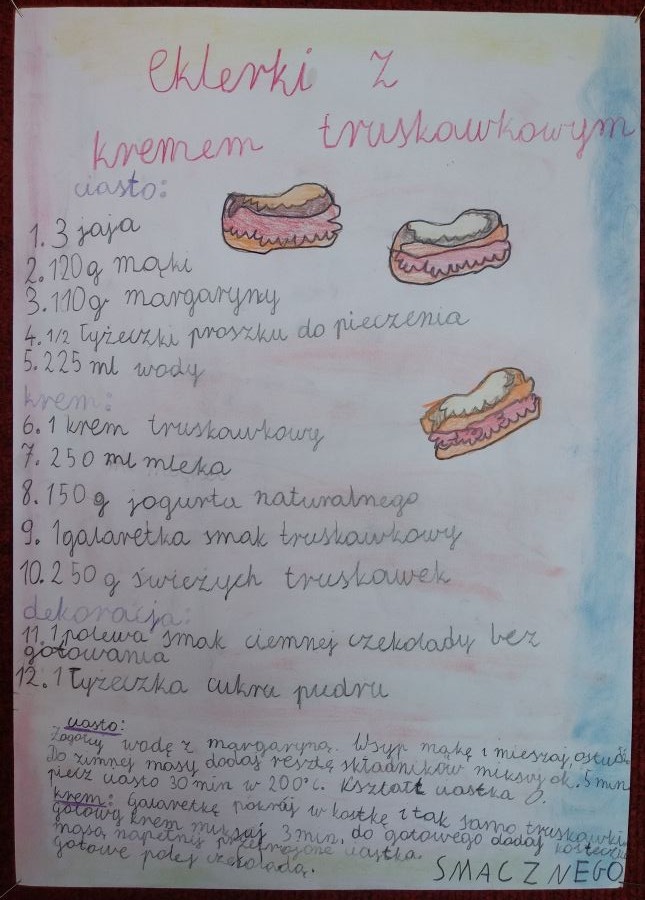 Eklerki z
kremem truskawkowym
ciasto:
1. 3 jaja
2. 120g mąki
3. 110g margaryny
4. 1/2 łyżeczki proszku do pieczenia
5. 225 ml wody
krem:
6. 1 krem truskawkowy
7. 250 ml mleka
8. 150g jogurtu naturalnego
9. 1galaretka smak truskawkowy
10. 250g świeżych truskawek
dekoracja:
11. 1 polewa smak ciemnej czekolady bez
gotowania
12. 1 łyżeczka cukru pudru
ciasto:
Zagotuj wodę z margaryną. Wsyp mąkę i mieszaj, ostudź.
Do zimnej masy dodaj resztę składników miksuj ok. 5 min
piecz ciasto 30 min w 200°C. Kształt ciastka 0.
krem: Galaretkę pokrój w kostkę i tak samo truskawki,
gotowy krem miksuj 3 min. do gotowego dodaj kosteczki
masą napełnij ciastka.
gotowe polej czekoladą.
SMACZNEGO